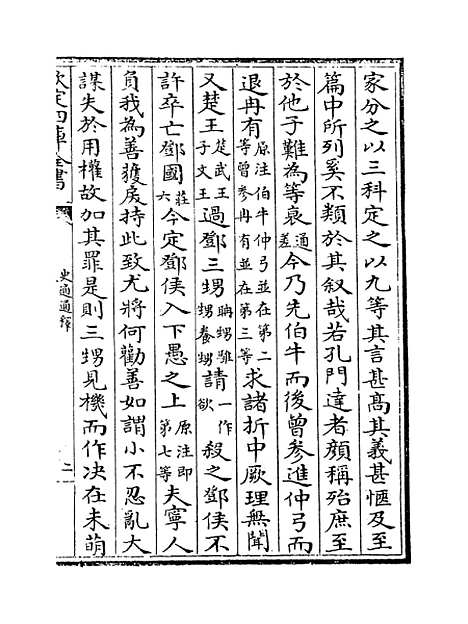 家分之以三科定之以九等其言甚高其義甚愜及至
篇中所列奚不類於其叙哉若孔門達者顔稱殆庶至
於他子難為等衰通差今乃先伯牛而後曾參進仲弓而
退冉有原注伯牛仲弓並在第二等曾參冉有並在第三等求諸折中厥理無聞
又楚王楚武王子文王過鄧三甥聃甥騅甥養甥請一作欲殺之鄧侯不
許卒亡鄧國莊六今定鄧侯入下愚之上原注即第七等夫寧人
負我為善獲戾持此致尤將何勸善如謂小不忍亂大
謀失於用權故加其罪是則三甥見機而作决在未萌
欽定四庫全書
史通通釋
二